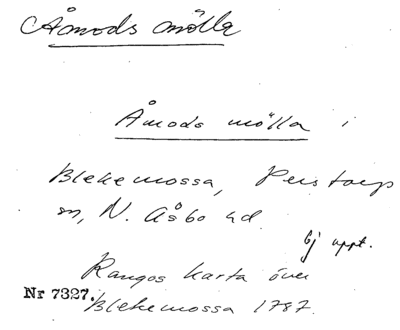 Åmods mölla
Åmods mölla i
Blekemossa, Perstorp
sn, N. Åsbo hd.
Ej uppt.
Rangos karta över
Nr 7327. Blekemossa 1787.